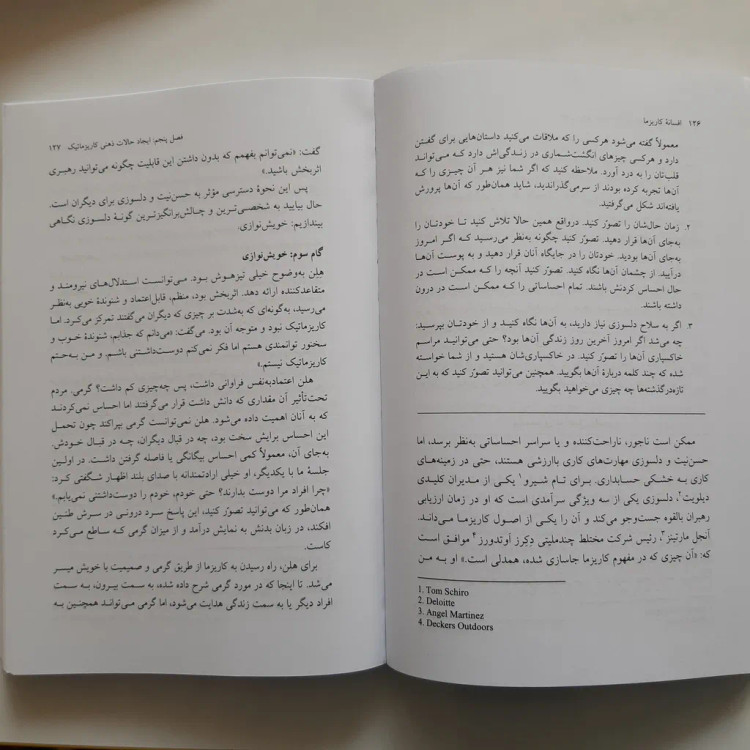 ۱۲۶ افسانهٔ کاریزما
معمولاً گفته می‌شود هرکسی را که ملاقات می‌کنید داستان‌هایی برای گفتن
دارد و هرکسی چیزهای انگشت‌شماری در زندگی‌اش دارد که می‌تواند
قلب‌تان را به درد آورد. ملاحظه کنید که اگر شما نیز هر آن چیزی را که
آن‌ها تجربه کرده بودند از سرمی‌گذراندید، شاید همان‌طور که آن‌ها پرورش
یافته‌اند شکل می‌گرفتید.
۲. زمان حال‌شان را تصوّر کنید. درواقع همین حالا تلاش کنید تا خودتان را
به‌جای آن‌ها قرار دهید. تصوّر کنید چگونه به‌نظر می‌رسید که اگر امروز
به‌جای آن‌ها بودید. خودتان را در جایگاه آنان قرار دهید و به پوست آن‌ها
درآیید. از چشمان آن‌ها نگاه کنید. تصوّر کنید آنچه را که ممکن است در
حال احساس کردنش باشند. تمام احساساتی را که ممکن است در درون
داشته باشند.
۳. اگر به سلاح دلسوزی نیاز دارید، به آن‌ها نگاه کنید و از خودتان بپرسید:
چه می‌شد اگر امروز آخرین روز زندگی آن‌ها بود؟ حتی می‌توانید مراسم
خاکسپاری آن‌ها را تصوّر کنید. در خاکسپاری‌شان هستید و از شما خواسته
شده که چند کلمه دربارهٔ آن‌ها بگویید. همچنین می‌توانید تصوّر کنید که به این
تازه‌درگذشته‌ها چه چیزی می‌خواهید بگویید.
ممکن است ناجور، ناراحت‌کننده و یا سراسر احساساتی به‌نظر برسد، اما
حسن‌نیت و دلسوزی مهارت‌های کاری باارزشی هستند، حتی در زمینه‌های
کاری به خشکی حسابداری. برای تام شیرو۱ یکی از مدیران کلیدی
دیلویت۲، دلسوزی یکی از سه ویژگی سرآمدی است که او در زمان ارزیابی
رهبران بالقوه جست‌وجو می‌کند و آن را یکی از اصول کاریزما می‌داند.
آنجل مارتینز۳، رئیس شرکت مختلط چندملیتی دِکِرز آوتدورز۴ موافق است
که: «آن چیزی که در مفهوم کاریزما جاسازی شده، همدلی است.» او به من
1. Tom Schiro
2. Deloitte
3. Angel Martinez
4. Deckers Outdoors
فصل پنجم: ایجاد حالات ذهنی کاریزماتیک ۱۲۷
گفت: «نمی‌توانم بفهمم که بدون داشتن این قابلیت چگونه می‌توانید رهبری
اثربخش باشید.»
پس این نحوهٔ دسترسی مؤثر به حسن‌نیت و دلسوزی برای دیگران است.
حال بیایید به شخصی‌ترین و چالش‌برانگیزترین گونهٔ دلسوزی نگاهی
بیندازیم: خویش‌نوازی.
گام سوم: خویش‌نوازی
هلن به‌وضوح خیلی تیزهوش بود. می‌توانست استدلال‌های نیرومند و
متقاعدکننده ارائه دهد. اثربخش بود، منظم، قابل‌اعتماد و شنوندهٔ خوبی به‌نظر
می‌رسید، به‌گونه‌ای که به‌شدت بر چیزی که دیگران می‌گفتند تمرکز می‌کرد. اما
کاریزماتیک نبود و متوجه آن بود. می‌گفت: «می‌دانم که جذابم، شنوندهٔ خوب و
سخنور توانمندی هستم اما فکر نمی‌کنم دوست‌داشتنی باشم. و من به‌حتم
کاریزماتیک نیستم.»
هلن اعتمادبه‌نفس فراوانی داشت، پس چه‌چیزی کم داشت؟ گرمی. مردم
تحت‌تأثیر آن مقداری که دانش داشت قرار می‌گرفتند اما احساس نمی‌کردند
که به آنان اهمیت داده می‌شود. هلن نمی‌توانست گرمی بپراکند چون تحمل
این احساس برایش سخت بود، چه در قبال دیگران، چه در قبال خودش.
به‌جای آن، معمولاً کمی احساس بیگانگی یا فاصله گرفتن داشت. در اولین
جلسهٔ ما با یکدیگر، او خیلی ارادتمندانه با صدای بلند اظهار شگفتی کرد:
«چرا افراد مرا دوست بدارند؟ حتی خودم، خودم را دوست‌داشتنی نمی‌یابم.»
همان‌طور که می‌توانید تصوّر کنید، این پاسخ سرد درونی در سرش طنین
افکند، در زبان بدنش به نمایش درآمد و از میزان گرمی که ساطع می‌کرد
کاست.
برای هلن، راه رسیدن به کاریزما از طریق گرمی و صمیمیت با خویش میسر
می‌شد. تا اینجا که در مورد گرمی شرح داده شده، به سمت بیرون، به سمت
افراد دیگر یا به سمت زندگی هدایت می‌شود، اما گرمی می‌تواند همچنین به